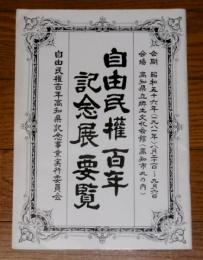 会期 昭和五十六年(一九八一年)八月二十日〜九月六日
会場 高知県立郷土文化会館(高知市丸の内)
自由民權百年
記念展要覧
自由民權百年高知県記念事業実行委員会